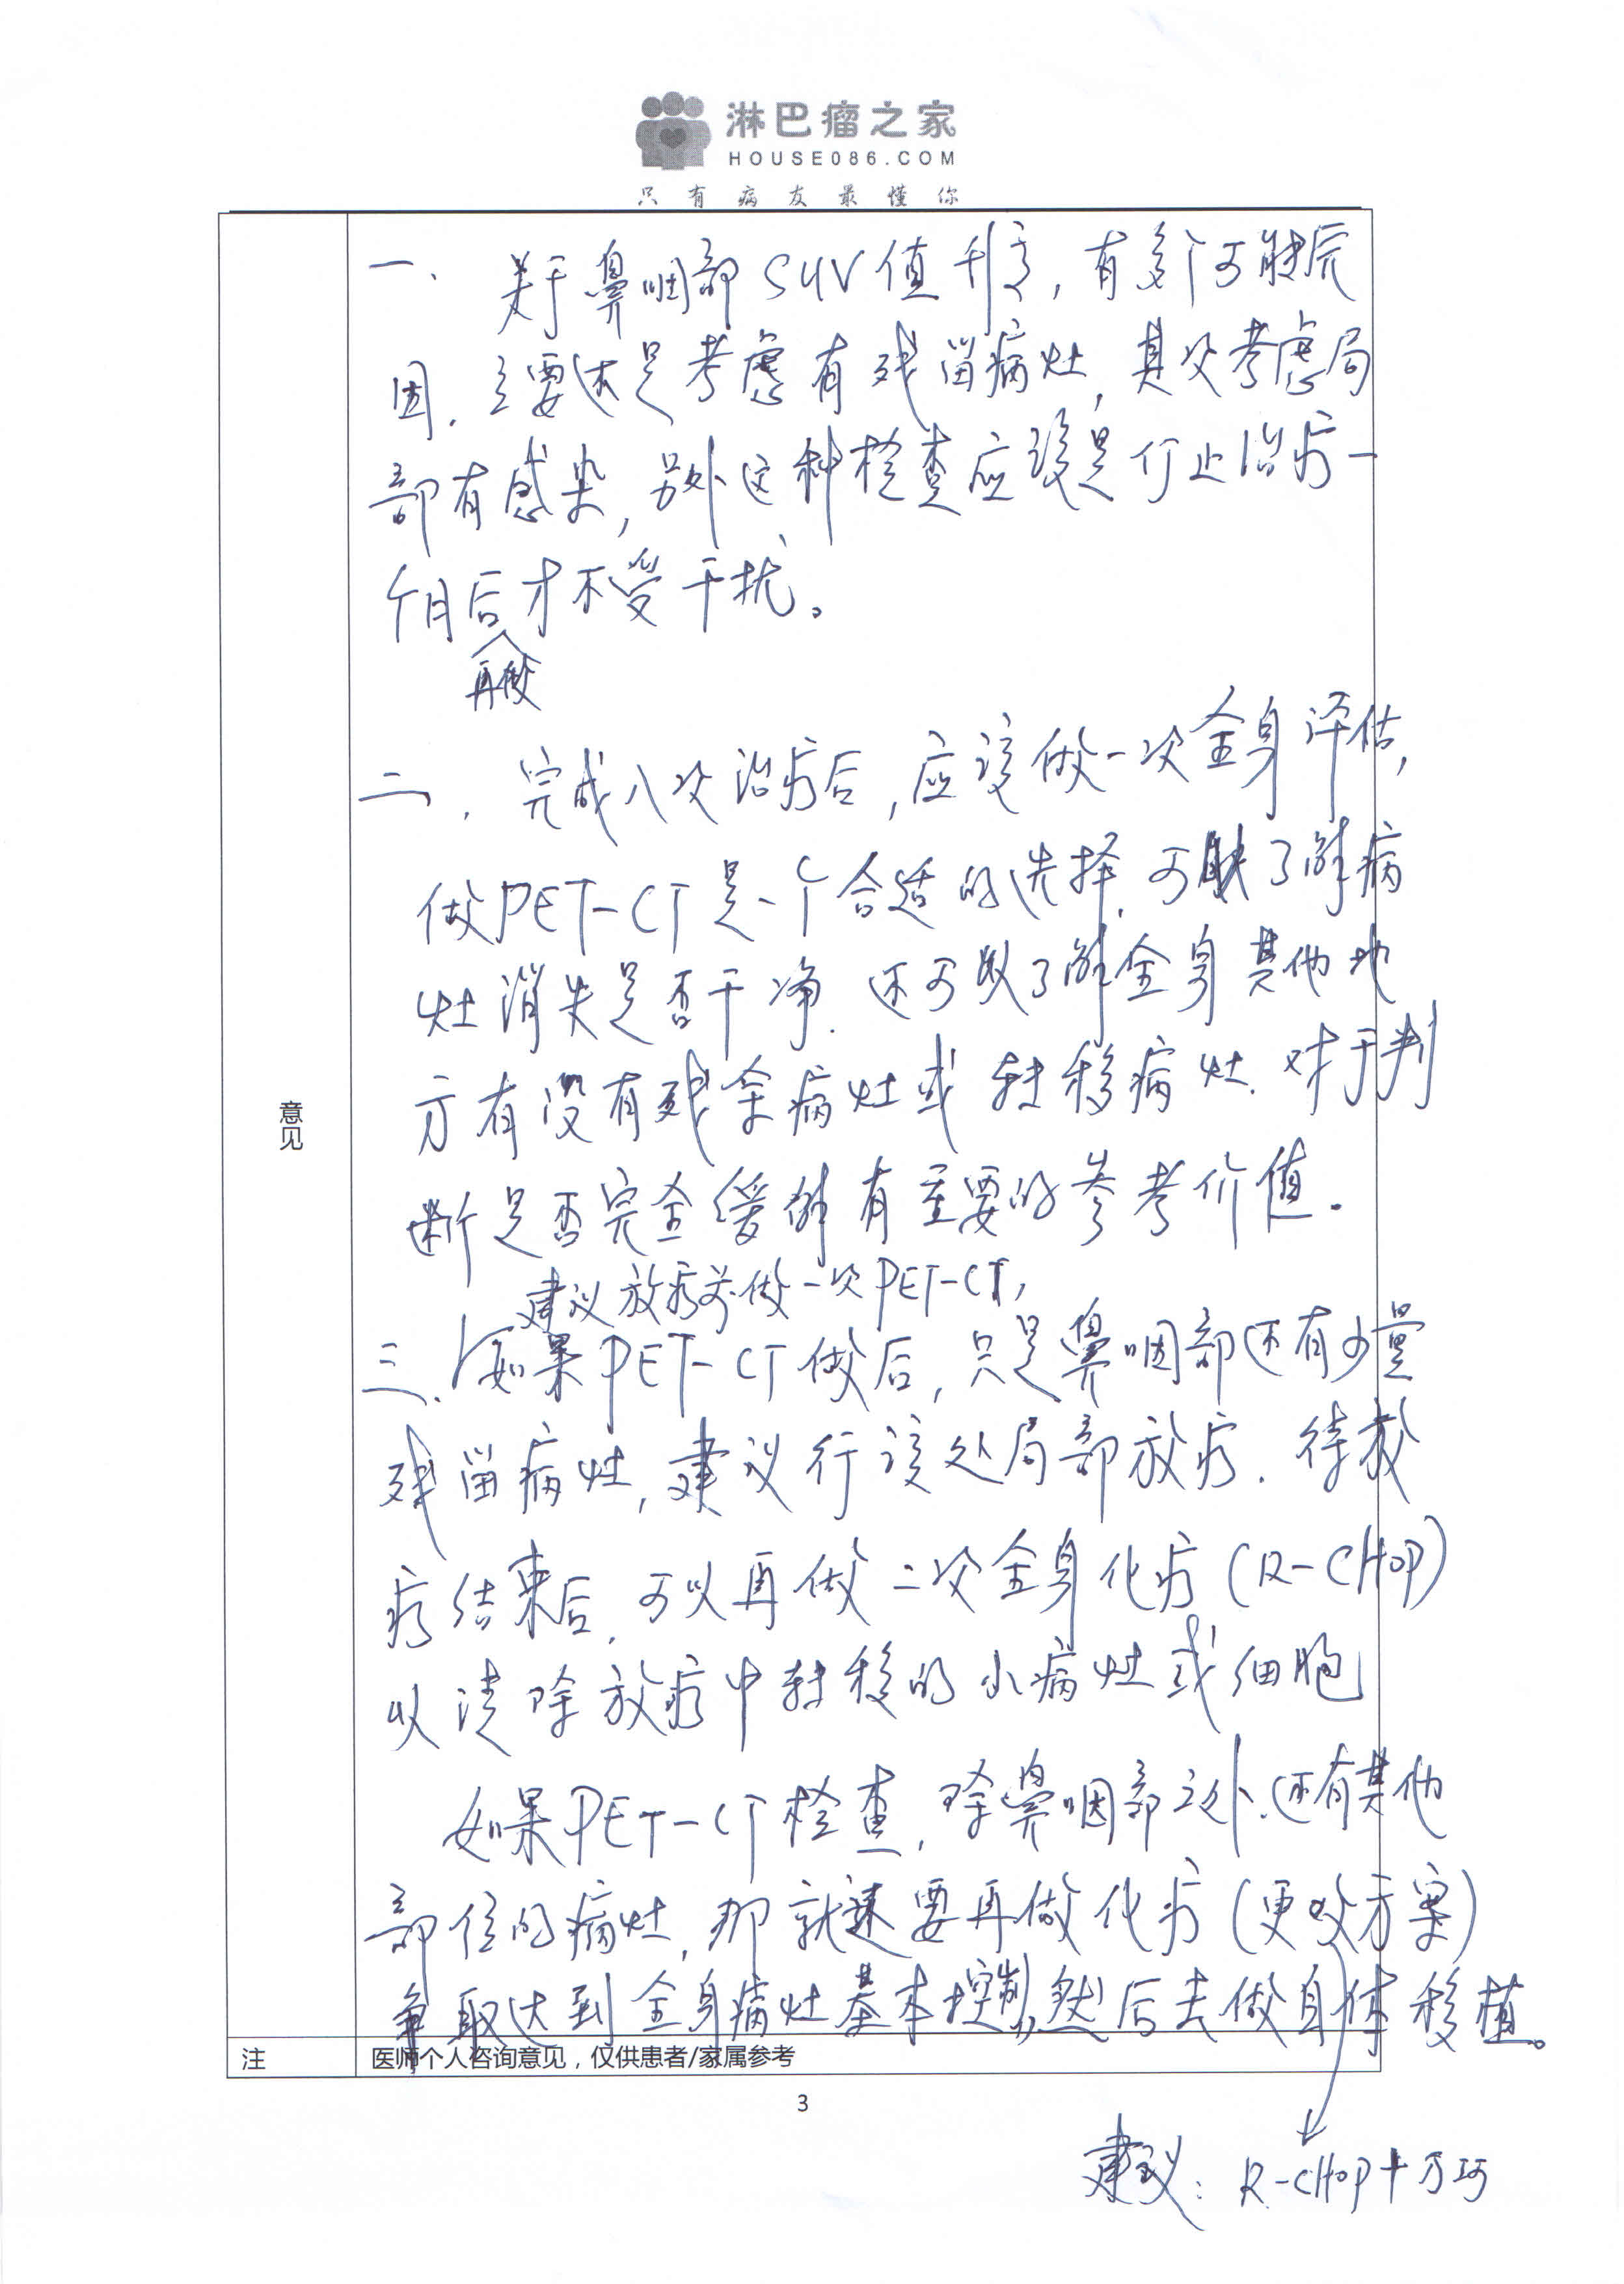 淋巴瘤之家
HOUSE086.COM
只有病友最懂你
一、关于鼻咽部SUV值升高,有多个可能原
因.主要还是考虑有残留病灶,其次考虑局
部有感染,另外这种检查应该是停止治疗一
个月后才不受干扰。
再做
二.完成八次治疗后,应该做一次全身评估,
做PET-CT是一个合适的选择.可以了解病
灶消失是否干净.还可以了解全身其他地
方有没有残余病灶或转移病灶.对于判
断是否完全缓解有重要的参考价值.
建议放疗前做一次PET-CT,
三.如果PET-CT做后,只是鼻咽部还有少量
残留病灶,建议行该处局部放疗.待放
疗结束后,可以再做二次全身化疗(R-CHOP)
以清除放疗中转移的小病灶或细胞
如果PET-CT检查,除鼻咽部之外.还有其他
部位的病灶,那就要再做化疗(更改方案)
争取达到全身病灶基本控制,然后去做自体移植。
意见
注 医师个人咨询意见，仅供患者/家属参考
3
建议:R-CHOP+万珂